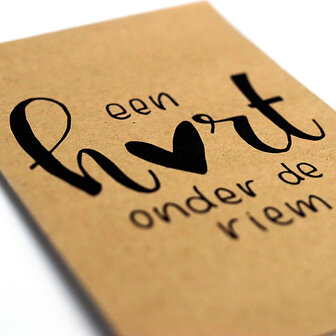 een
h♥rt
onder de
riem